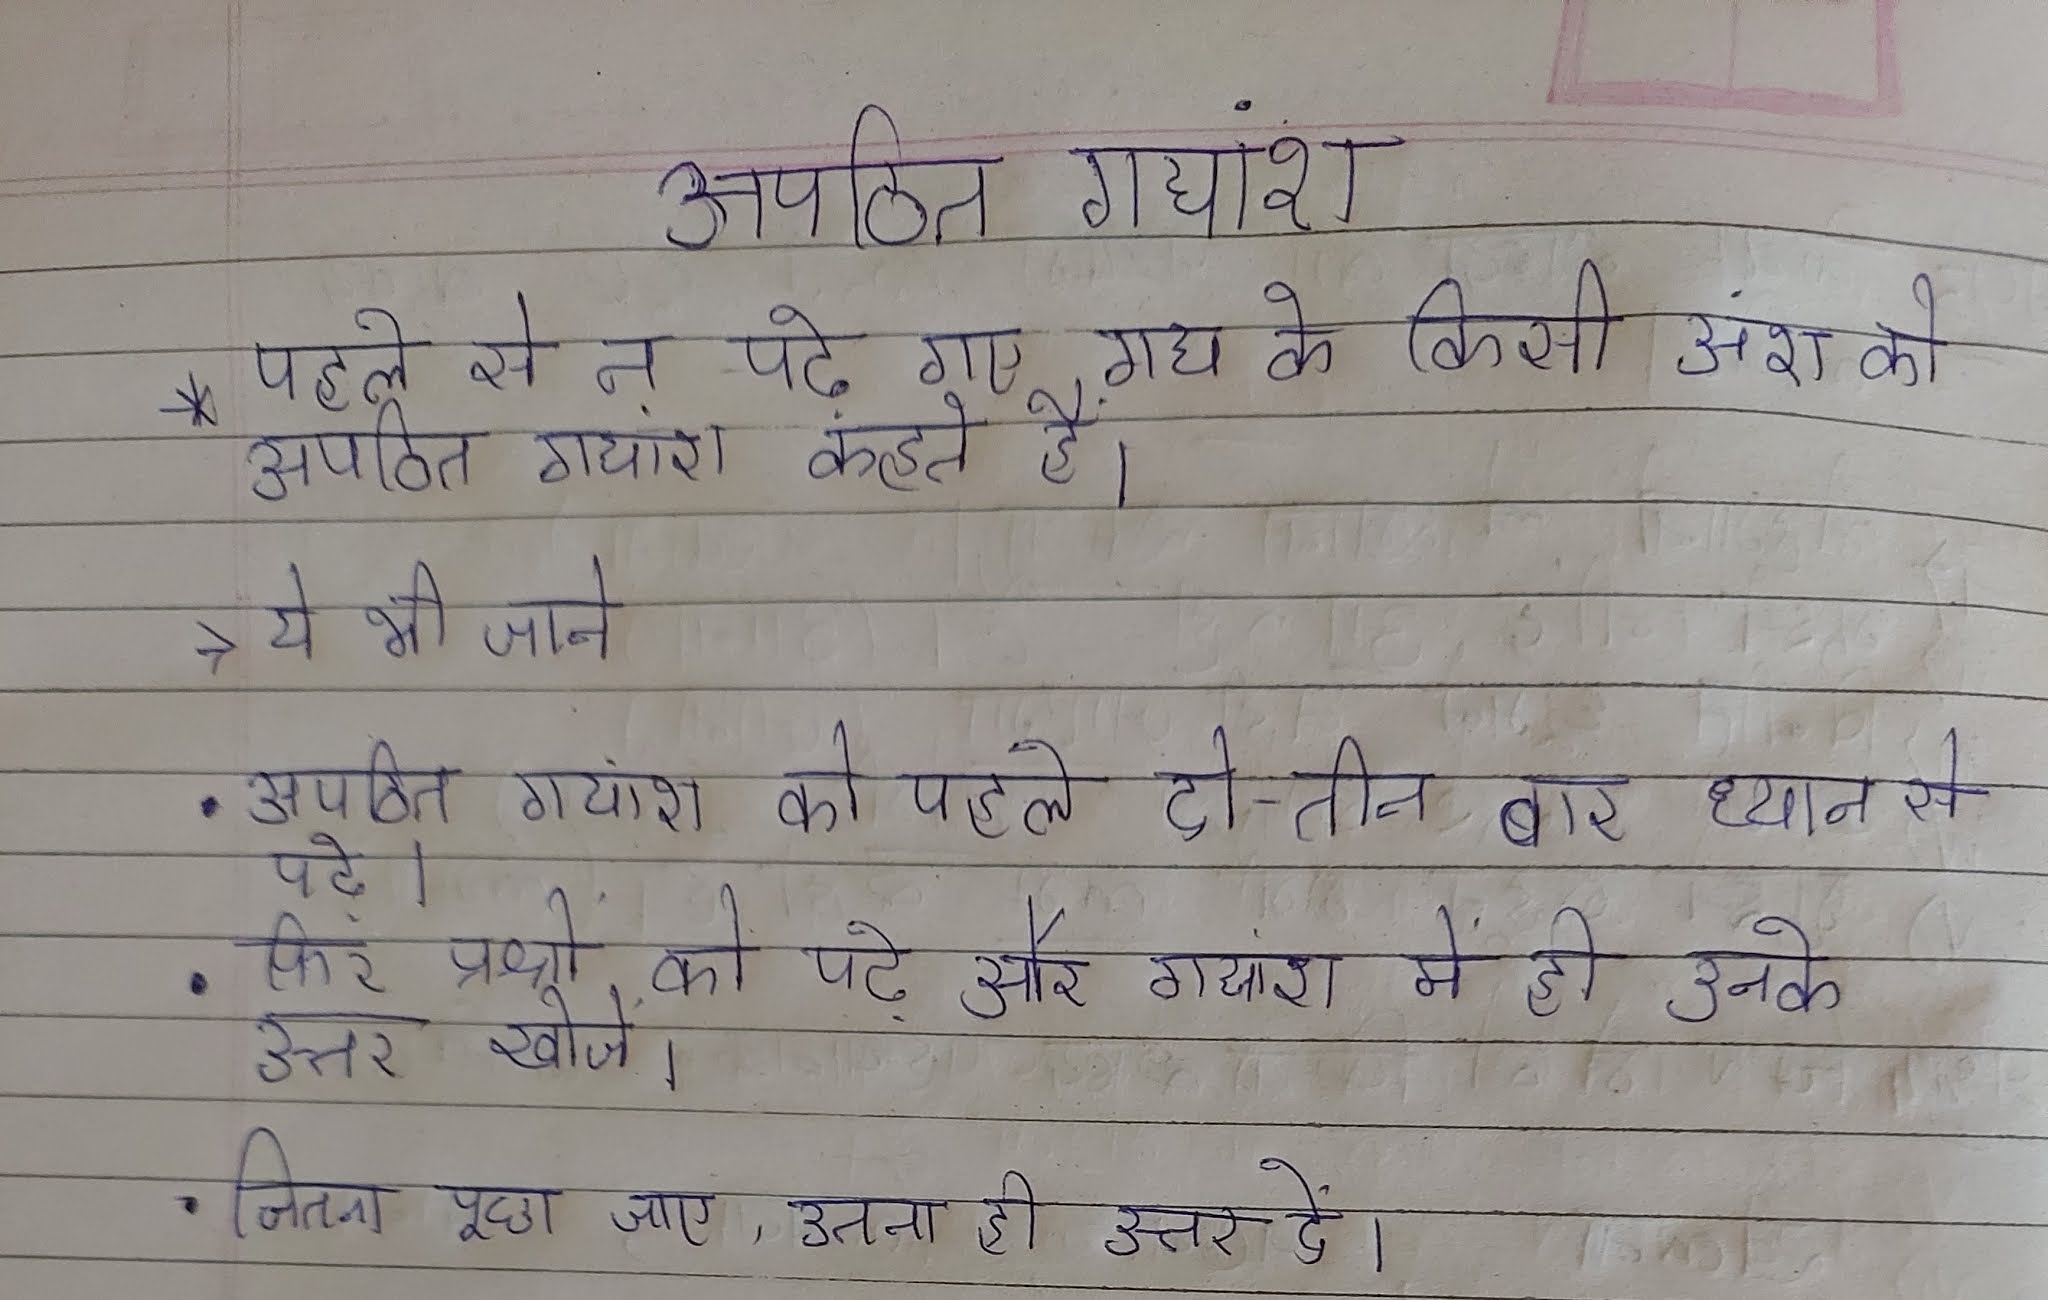 अपठित गद्यांश
* पहले से न पढ़े गए गद्य के किसी अंश को
अपठित गद्यांश कंहते हैं।
→ ये भी जाने
• अपठित गद्यांश को पहले दो-तीन बार ध्यान से
पढ़े।
• फिर प्रश्नों को पढ़े और गद्यांश में ही उनके
उत्तर खोजें।
• जितना पूछा जाए, उतना ही उत्तर दें।